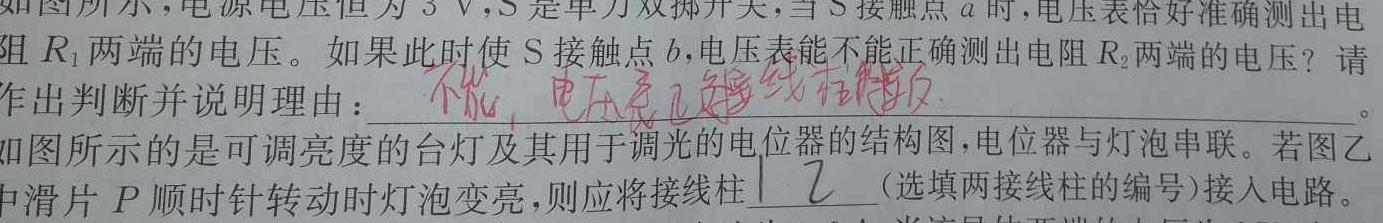 如图所示,电源电压恒为 3 V,S 是单刀双掷开关,当 S 接触点 a 时,电压表恰好准确测出电
阻 R₁ 两端的电压。如果此时使 S 接触点 b,电压表能不能正确测出电阻 R₂ 两端的电压? 请
作出判断并说明理由: 不能, 电压表正负接线柱接反 。
如图所示的是可调亮度的台灯及其用于调光的电位器的结构图,电位器与灯泡串联。若图乙
中滑片 P 顺时针转动时灯泡变亮,则应将接线柱 1 2 (选填两接线柱的编号)接入电路。